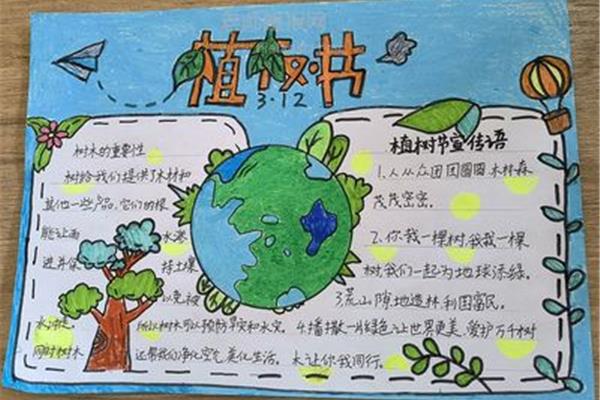 植树节
3.12
树木的重要性
树给我们提供了木材和
其他一些产品。它们的根
能让雨水渗
进并保持土壤
以免被
水冲走。所以树木可以预防旱灾和水灾。
同时树木还帮我们净化空气,美化生活。
植树节宣传语
1.人从众团团圆圆,木林森
茂茂密密。
2.你我一棵树,我栽一棵
树,我们一起为地球添绿。
3.荒山隙地造林,利国富民。
4.播撒一片绿色,让世界更美,爱护万千树
木,让你我同行。